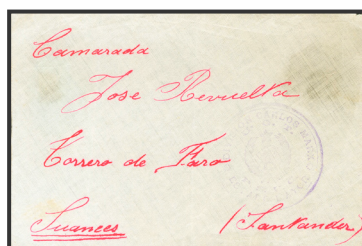 Camarada
Jose Revuelta
Torrero de Faro
Suances (Santander)